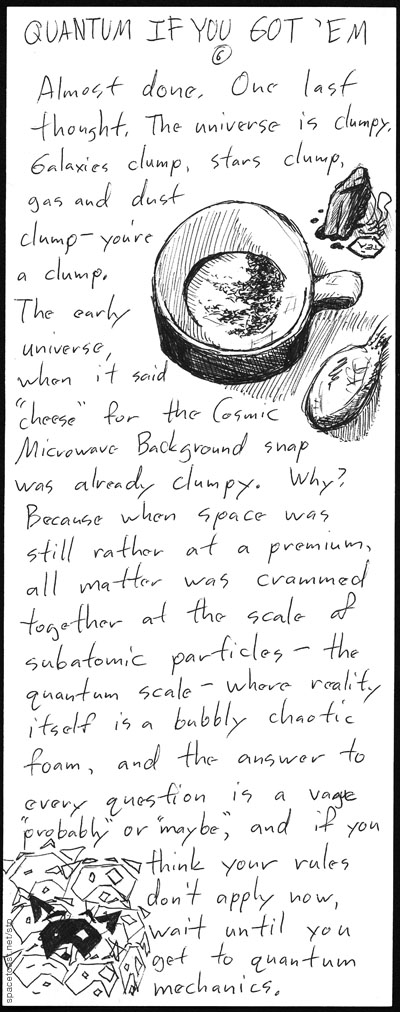 QUANTUM IF YOU GOT 'EM
6
Almost done. One last
thought. The universe is clumpy.
Galaxies clump, stars clump,
gas and dust
clump—you're
a clump.
The early
universe,
when it said
"cheese" for the Cosmic
Microwave Background snap
was already clumpy. Why?
Because when space was
still rather at a premium,
all matter was crammed
together at the scale of
subatomic particles — the
quantum scale — where reality
itself is a bubbly chaotic
foam, and the answer to
every question is a vage
"probably" or "maybe", and if you
think your rules
don't apply now,
wait until you
get to quantum
mechanics.
TEA
spacetoast.net/stp